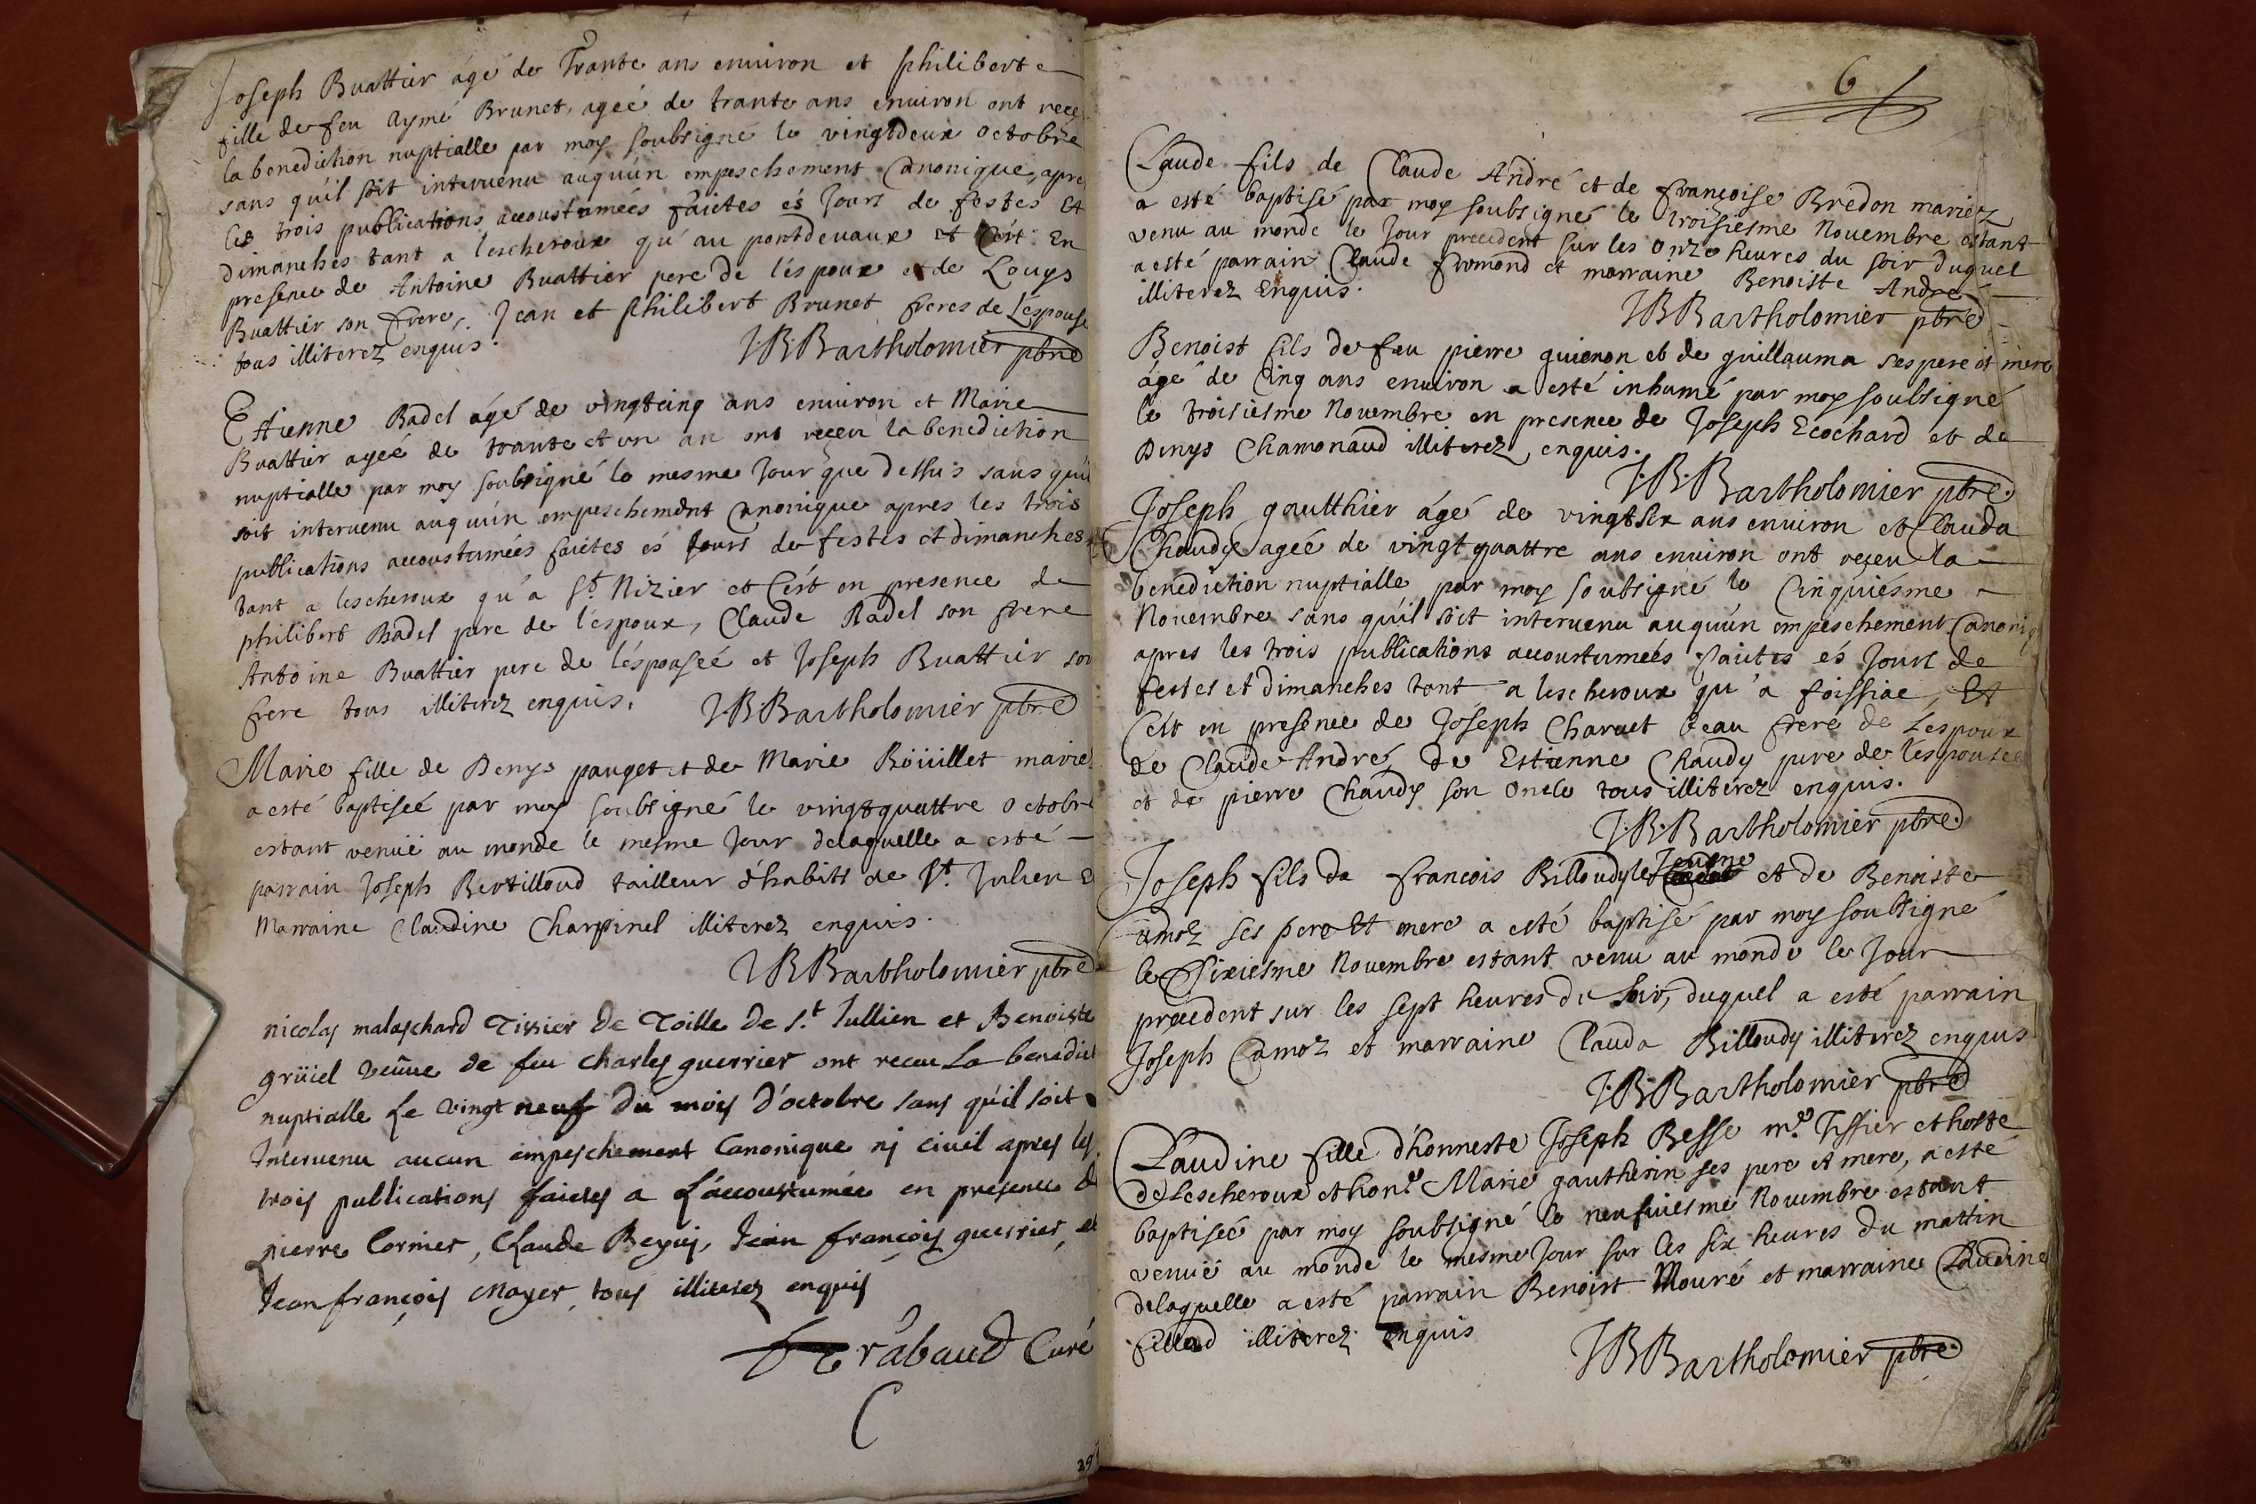 Joseph Buattier ágé de Trante ans enuiron et philiberte
fille de feu Aymé Brunet, ageé de trante ans enuiron ont rece
la benediction nuptialle par moy soubsigné le vingtdeux octobre
sans qu'il soit interuenu auqu'un empeschement Canonique, apre
les trois publications accoustumées faictes és Jours de festes Et
dimanches tant a lescheroux qu'au pontdevaux et C'ést En
presence de Antoine Buattier pere de l'éspoux et de Louys
Buattier son frere, Jean et philibert Brunet freres de L'éspouse
tous illiterez enquis.
JB.Bartholomier pbre
Etienne Badel ágé de vingtcinq ans enuiron et Marie
Buattier ageé de trante et un an ont reçeu la benediction
nuptialle par moy soubsigné le mesme Jour que dessus sans qu'il
soit interuenu auqu'un empeschement Canonique apres les trois
publications accoustumées faictes és Jours de festes et dimanches
tant a lescheroux qu'a St. Nizier et C'ést en presence de
philibert Badel pere de l'éspoux, Claude Badel son frere
Antoine Buattier pere de l'éspouseé et Joseph Buattier son
frere tous illiterez enquis.
J.B.Bartholomier pbre
Marie fille de Denys pauget et de Marie Böüillet marie
a esté baptiseé par moy soubsigné le vingtquattre octobre
estant venuë au monde le mesme Jour delaquelle a esté
parrain Joseph Bertilloud tailleur d'habitt de St. Julien E
Marraine Claudine Charpinel illiterez enquis.
JBBartholomier pbre
nicolas malaschard Tissier de Toille de S.t Jullien et Benoiste
grüiel veüue de feu charles guerrier ont receu La benedict
nuptialle Le vingt neuf du mois d'octobre sans qu'il soit
Interuenu aucun empeschement Canonique nj ciuil apres les
trois publications faictes a L'accoustumée en presence d
pierre Cormier, Claude Reyuj, Jean françois guerrier, et
Jean françois Mayer, tous illiterez enquis
rabaud Curé
6
Claude fils de Claude André et de françoise Bredon mariez
a esté baptisé par moy soubsigné le troisiesme Nouembre estant
venu au monde le Jour precedent sur les Onze heures du soir duquel
a esté parrain Claude fromond et marraine Benoiste André
illiterez Enquis.
JBBartholomier pbre
Benoist fils de feu pierre guienon et de guillauma ses pere et mere
ágé de Cinq ans enuiron a esté inhumé par moy soubsigné
le troisiesme Nouembre en presence de Joseph Ecochard et de
Denys Chamonaud illiterez, enquis.
J.B.Bartholomier pbre.
Joseph gautthier ágé de vingtsix ans enuiron et Clauda
Chaudy ageé de vingtquattre ans enuiron ont reçeu la
benediction nuptialle par moy soubsigné le Cinquiésme
Nouembre sans qu'il soit interuenu auqu'un empeschement Canoniq
apres les trois publications accoustumées faictes és Jours de
festes et dimanches tant a lescheroux qu'a foissiac, Et
C'ést en presence de Joseph Charuet beau frere de Lespoux
de Claude André, de Estienne Chaudy pere de l'espousee
et de pierre Chaudy son Oncle tous illiterez enquis.
J.B.Bartholomier pbre.
Joseph fils de françois Billoudy le Jeusne et de Benoiste
camoz ses pere Et mere a esté baptisé par moy soubsigné
le Sixiesme Nouembre estant venu au monde le Jour
precedent sur les sept heures du soir, duquel a esté parrain
Joseph Camoz et marraine Clauda Billoudy illiterez enquis
J.B.Bartholomier pbre
Claudine fille d'honneste Joseph Besse md Tissier et hoste
de Lescheroux et hon.e Marie gautherin ses pere et mere, a esté
baptiseé par moy soubsigné le neufuiesme Nouembre estant
venuë au monde le mesme Jour sur les six heures du mattin
delaquelle a esté parrain Benoist Mouré et marraine Claudine
fillod illiterez enquis
JBBartholomier pbre